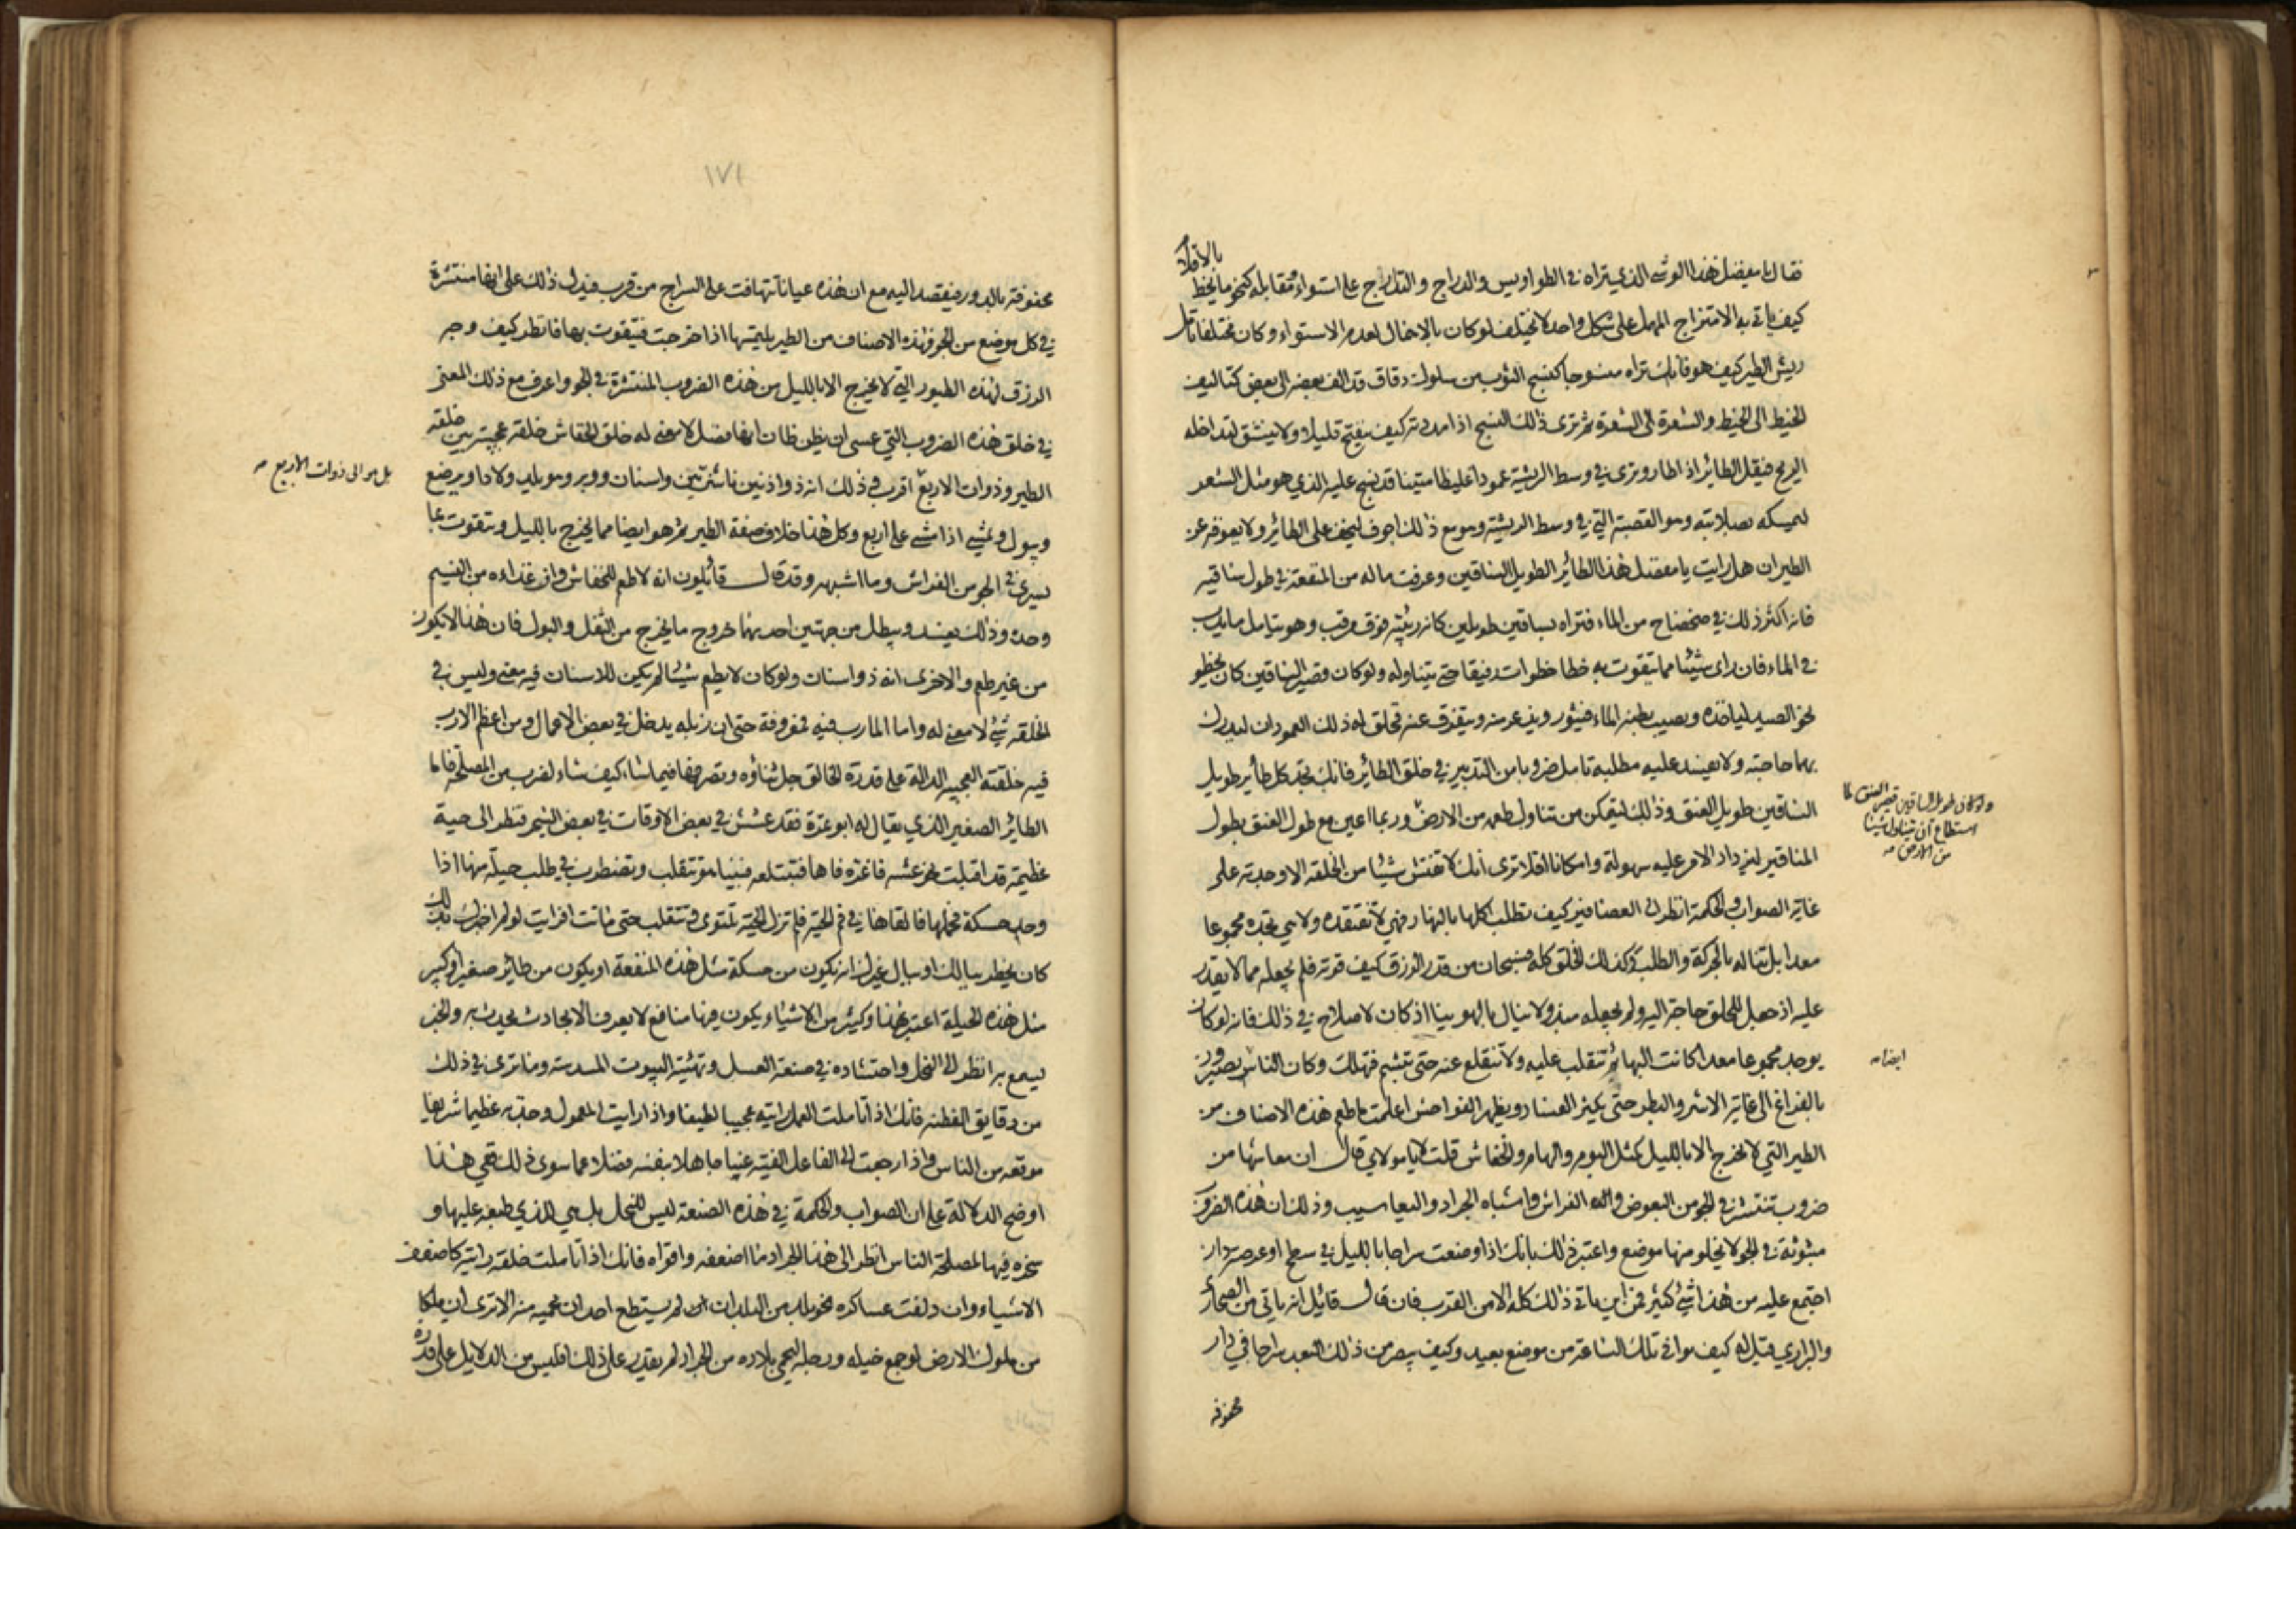 بالاقلام
فقال يا مفضل هذا الوشي الذي تراه في الطواويس والدراج والتدارج على استواء ومقابله كنحو ما يخط
كيف ياتي به الامتزاج المهمل على شكل واحد لا يختلف لو كان بالاهمال لعدم الاستواء وكان مختلفا تامل
ريش الطير كيف هو فانك تراه منسوجا كنسج الثوب من سلوك دقاق قد الف بعضه الى بعض كتاليف
الخيط الى الخيط والشعرة الى الشعرة ثم ترى ذلك النسج اذا مددته كيف ينفتح قليلا ولا ينشق لتداخله
الريح فيقل الطائر اذا طار وترى في وسط الريشة عمودا غليظا متينا قد نسج عليه الذي هو مثل الشعر
ليمسكه بصلابته وهو القصبة التي في وسط الريشة وهو مع ذلك اجوف ليخف على الطائر ولا يعوقه عن
الطيران هل رايت يا مفضل هذا الطائر الطويل الساقين وعرفت ماله من المنفعة في طول ساقيه
فانه اكثر ذلك في ضحضاح من الماء فتراه بساقين طويلين كانه ربيئة فوق مرقب وهو يتامل ما يدب
في الماء فان راى شيئا مما يتقوت به خطا خطوات رفيقا حتى يتناوله ولو كان قصير الساقين كان يخطو
نحو الصيد لياخذه ويصيب بطنه الماء فيثور ويذعر منه ويتفرق عنه فخلق له ذلك العمودان ليدرك
بهما حاجته ولا يفسد عليه مطلبه تامل ضروبا من التدبير في خلق الطائر فانك تجد كل طائر طويل
الساقين طويل العنق وذلك ليتمكن من تناول طعمه من الارض وربما اعين مع طول العنق بطول
ولو كان طويل الساقين قصير العنق لما
استطاع ان يتناول شيئا
من الارض صه
المناقير ليزداد الامر عليه سهولة وامكانا افلا ترى انك لا تفتش شيئا من الخلقة الا وجدته على
غاية الصواب والحكمة انظر الى العصافير كيف تطلب اكلها بالنهار فهي لا تفتقده ولا هي تجده مجموعا
معدا بل تناله بالحركة والطلب وكذلك الخلق كله فسبحان من قدر الرزق كيف قوته فلم يجعله مما لا يقدر
عليه اذ جعل للخلق حاجة اليه ولم يجعله مبذولا ينال بالهوينا اذ كان لا صلاح في ذلك فانه لو كان
يوجد مجموعا معدا كانت البهائم تنقلب عليه ولا تنقلع عنه حتى تبشم فتهلك وكان الناس يصيرون
ايضا صه
بالفراغ الى غاية الاشر والبطر حتى يكثر الفساد ويظهر الفواحش اعلمت ما طعم هذه الاصناف من
الطير التي لا تخرج الا بالليل كمثل البوم والهام والخفاش قلت لا يا مولاي قال ان معاشها من
ضروب تنتشر في الجو من البعوض والفراش واشباه الجراد واليعاسيب وذلك ان هذه الضروب
مبثوثة في الجو لا يخلو منها موضع واعتبر ذلك بانك اذا وضعت سراجا بالليل في سطح او عرصة دار
اجتمع عليه من هذا شيء كثير فمن اين ياتي ذلك كله الا من القرب فان قال قائل انه ياتي من الصحاري
والبراري قيل له كيف يوافي تلك الساعة من موضع بعيد وكيف يبصر من ذلك البعد سراجا في دار
محفوفة
١٧١
محفوفة بالدور فيقصد اليه مع ان هذه عيانا تتهافت على السراج من قرب فيدل ذلك على انها منتشرة
في كل موضع من الجو فهذه الاصناف من الطير يلتمسها اذا خرجت فتتقوت بها فانظر كيف وجه
الرزق لهذه الطيور التي لا تخرج الا بالليل من هذه الضروب المنتشرة في الجو واعرف مع ذلك المعنى
في خلق هذه الضروب التي عسى ان يظن ظان انها فضل لا معنى له خلق الخفاش خلقة عجيبة بين خلقة
الطير وذوات الاربع اقرب وذلك انه ذو اذنين ناشزتين واسنان ووبر وهو يلد ولادا ويرضع
بل هو الى ذوات الاربع صه
ويبول ويمشي اذا مشى على اربع وكل هذا خلاف صفة الطير ثم هو ايضا مما يخرج بالليل ويتقوت بما
يسري في الجو من الفراش وما اشبهه وقد قال قائلون انه لا طعم للخفاش وان غذاءه من النسيم
وحده وذلك يفسد ويبطل من جهتين احدهما خروج ما يخرج من الثفل والبول فان هذا لا يكون
من غير طعم والاخرى انه ذو اسنان ولو كان لا يطعم شيئا لم يكن للاسنان فيه معنى وليس في
الخلقة شيء لا معنى له واما المارب فيه فمعروفة حتى ان زبله يدخل في بعض الاعمال ومن اعظم الارب
فيه خلقته العجيبة الدالة على قدرة الخالق جل ثناؤه وتصرفها فيما شاء كيف شاء لضرب من المصلحة فاما
الطائر الصغير الذي يقال له ابو عزة فقد عشش في بعض الاوقات في بعض الشجر فنظر الى حية
عظيمة قد اقبلت نحو عشه فاغرة فاها فتبتلعه فبينا هو يتقلب ويضطرب في طلب حيلة منها اذا
وجد حسكة فحملها فالقاها في فم الحية فلم تزل الحية تلتوى وتتقلب حتى ماتت افرايت لو لم اخبرك بذلك
كان يخطر ببالك او ببال غيرك انه يكون من حسكة مثل هذه المنفعة او يكون من طائر صغير او كبير
مثل هذه الحيلة اعتبر بهذا وكثير من الاشياء يكون فيها منافع لا يعرف الا بحادث يحدث به والخبر
يسمع به انظر الى النحل واحتشاده في صنعة العسل وتهيئة البيوت المسدسة وما ترى في ذلك
من دقايق الفطنة فانك اذا تاملت العمل رايته عجيبا لطيفا واذا رايت المعمول وجدته عظيما شريفا
موقعه من الناس واذا رجعت الى الفاعل الفيته غبيا جاهلا بنفسه فضلا عما سوى ذلك ففي هذا
اوضح الدلالة على ان الصواب والحكمة في هذه الصنعة ليس للنحل بل هي للذي طبعه عليها و
سخره فيها لمصلحة الناس انظر الى هذا الجراد ما اضعفه واقواه فانك اذا تاملت خلقه رايته كاضعف
الاشياء وان دلفت عساكره نحو بلد من البلدان لم يستطع احد ان يحميه منه الا ترى ان ملكا
من ملوك الارض لو جمع خيله ورجله ليحمي بلاده من الجراد لم يقدر على ذلك افليس من الدلايل على قدرة